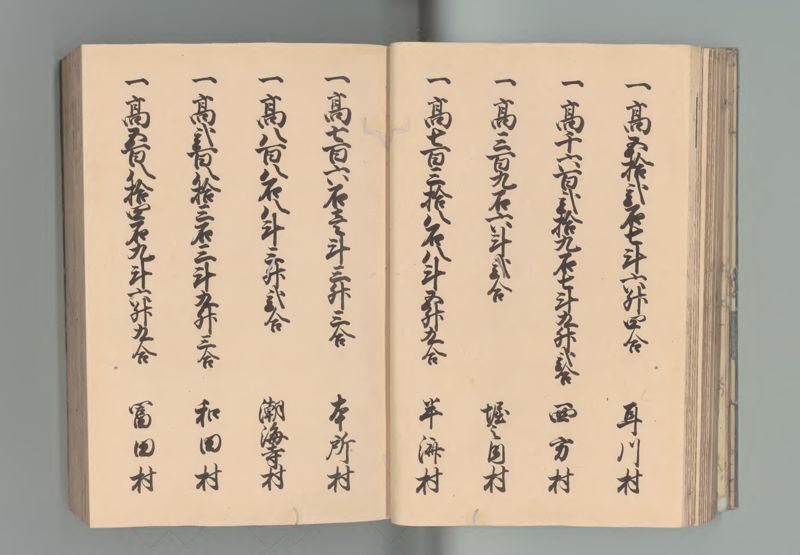 一 高五拾弐石七斗六升四合 耳川村
一 高千六百弐拾九石七斗九升弐合 西方村
一 高三百九石六斗弐合 堀之内村
一 高七百三拾八石八斗五升九合 半済村
一 高七百六石壱斗三升三合 本所村
一 高八百八石八斗三升弐合 潮海寺村
一 高弐百八拾三石三斗五升三合 和田村
一 高五百八拾四石九斗六升九合 冨田村